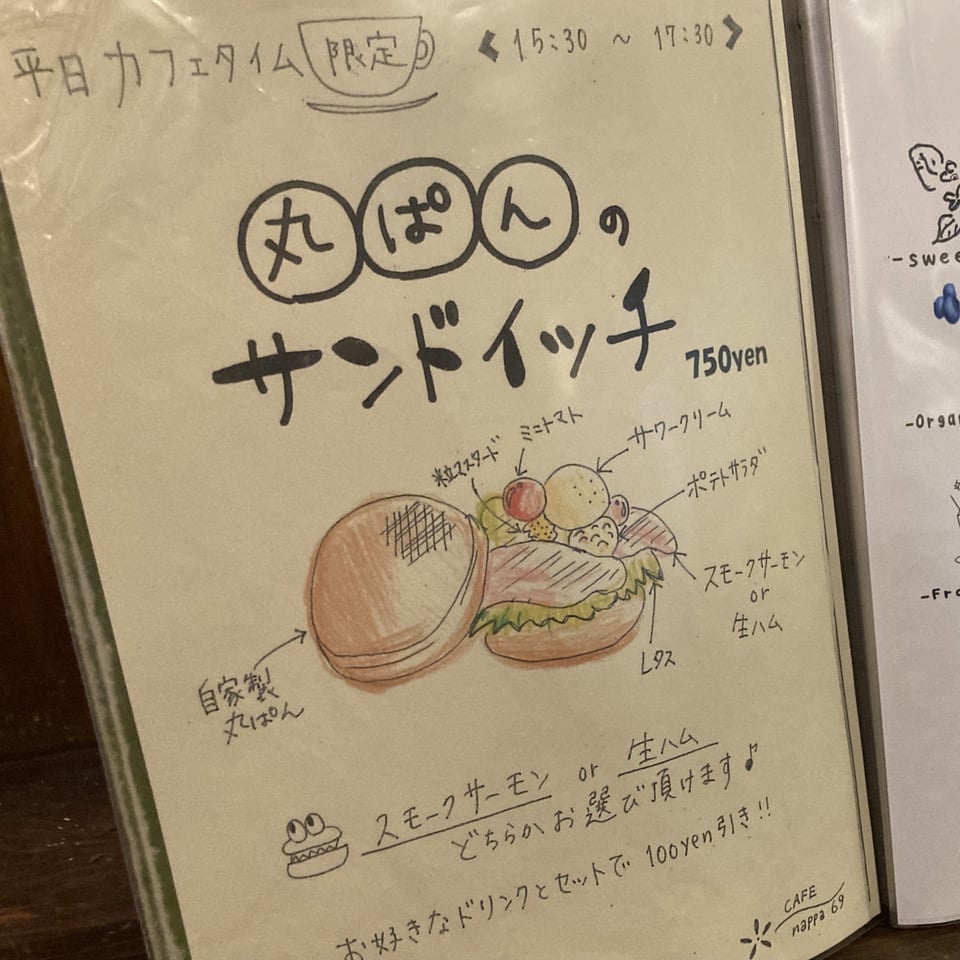 平日カフェタイム限定 《15:30 ～ 17:30》
丸ぱんの
サンドイッチ
750yen
粒マスタード
ミニトマト
サワークリーム
ポテトサラダ
スモークサーモン
or
生ハム
レタス
自家製
丸ぱん
スモークサーモン or 生ハム
どちらかお選び頂けます♪
お好きなドリンクとセットで 100yen引き!!
CAFE
nappa 69
-swee
-Orga
-Fro